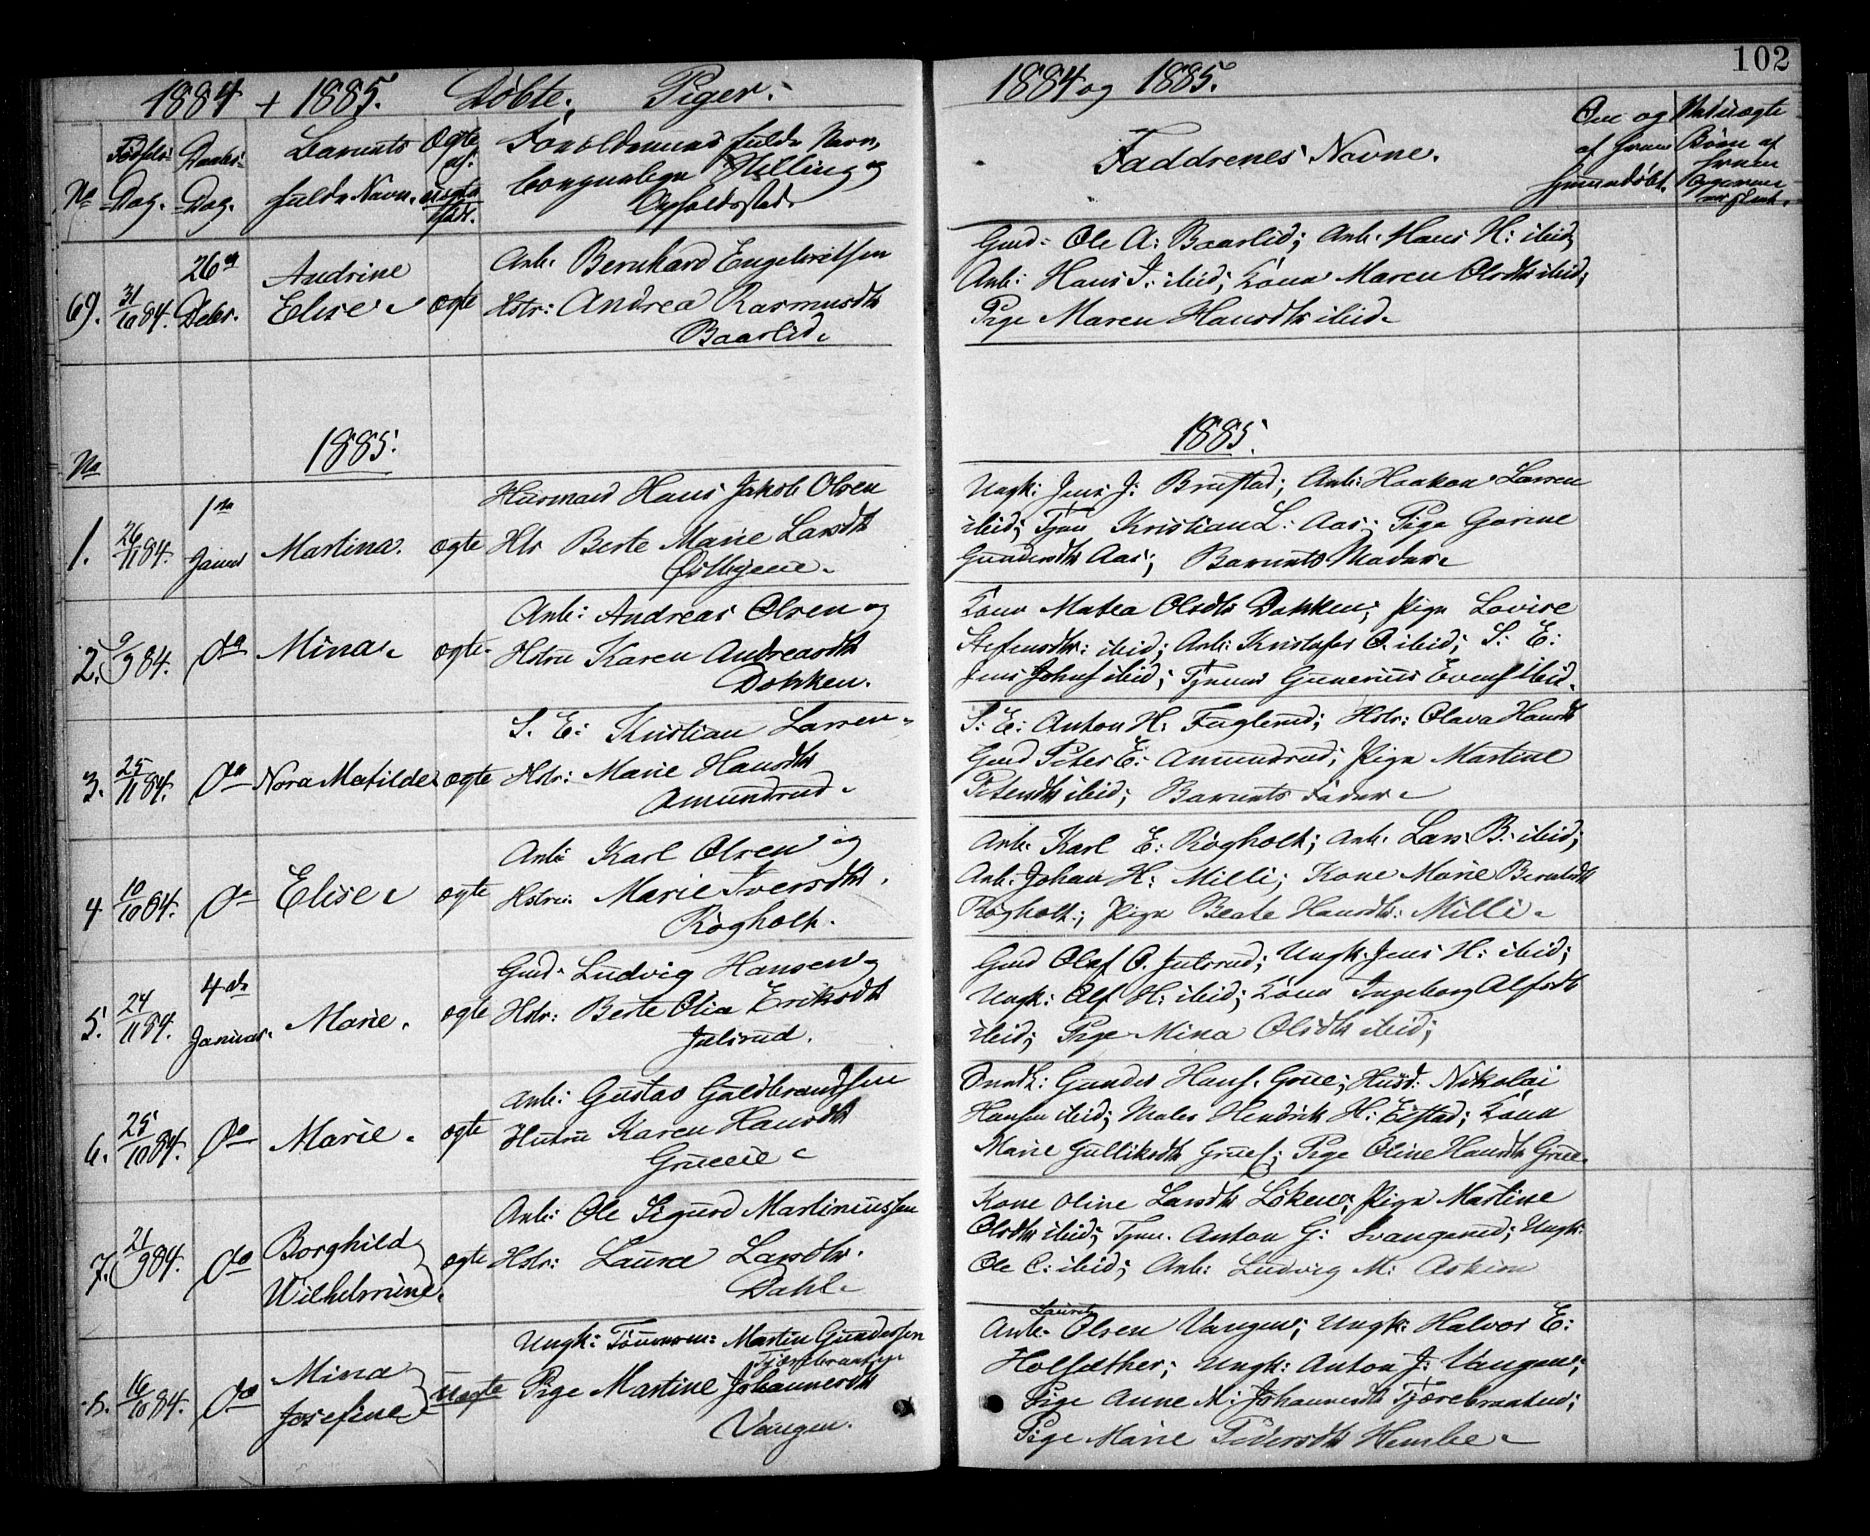 102
1884 + 1885. Döbte, Piger.
No Dag. Dag. fulde Navn.
Stilling og
Opholdssted.
69. 31/10 84. 26de Debr. Andrine Elise ægte
Arb: Bernhard Engebretsen
Hstr: Andrea Rasmusdtr
Baarlid
No 1885.
1. 26/11 84. 1ste Januar Martina. ægte
Husmand Hans Jakob Olsen
Hstr Berte Marie Larsdtr
2. 9/9 84. do Mina ægte
Arb: Andreas Olsen og
Hstru Karen Andreasdtr
Dokken.
3. 25/11 84. do Nora Matilde ægte
S. E: Kristian Larsen
Hstr: Marie Hansdtr
Amundrud
4 10/10 84. do Elise ægte
Arb: Karl Olsen og
Hstru: Marie Iversdtr.
Rögholt.
5. 24/11 84. 4de Januar. Marie. ægte
Gmd. Ludvig Hansen
Hstr: Berte Olia Eriksdtr
Julsrud.
6. 25/10 84. do Marie. ægte
Arb: Gustav Guldbrandsen
Hustru Karen Hansdtr
7. 21/9 84. do Borghild Wilhelmine. ægte
Arb: Ole Sigurd Martiniussen
Hstr: Laura Larsdtr.
Dahl
8. 16/10 84. do Mina Josefine uægte
Ungk: Tömmerm: Martin Gundersen
Pige Martine Johannesdtr
Vangen.
1884 og 1885.
Faddrenes Navne.
Gmd: Ole A: Baarlid; Arb: Hans H: ibid;
Arb: Hans J: ibid; Kone Maren Olsdtr ibid;
Pige Maren Hansdtr ibid
1885.
Ungk: Jens J: Brustad; Arb: Haakon Larsen
ibid; Tjen Kristian L: Aas; Pige Gorine
Gundersdtr Aas; Barnets Moder
Kone Matea Olsdtr Dokken; Pige Lovise
Stefensdtr: ibid; Arb: Kristofer O. ibid; S: E:
Jens Johns ibid; Tjener Gunerius Evens ibid.
S: E: Anton H. Fuglerud; Hstr: Olava Hansdtr
Gmd Peter E: Amundrud; Pige Martine
Petersdtr ibid; Barnets Fader
Arb: Karl E: Rögholt; Arb: Lars B: ibid;
Arb: Johan H: Milli; Kone Marie Berntsdtr
Rögholt; Pige Beate Hansdtr: Milli
Gmd Olaf O. Julsrud; Ungk: Jens H: ibid;
Ungk: Alf H: ibid; Kone Ingeborg Alfsdtr
ibid; Pige Mina Olsdtr ibid;
Gunder Hans. Grue; Husd: Nikolai
Hansen ibid; Maler Hendrik H: Eistad; Kone
Marie Gulliksdtr Grue; Pige Oline Hansdtr Grue
Kone Oline Larsdtr Löken; Pige Martine
Olsdtr ibid; Tjen. Anton G: Svangerud; Ungk:
Ole C: ibid; Arb: Ludvig M: Askim
Laurits
Arb: Olsen Vangen; Ungk: Halvor E:
Holsæther; Ungk: Anton J: Vangen;
Pige Anne M: Johannesdtr Tjærebraatend;
Pige Marie Pedersdtr